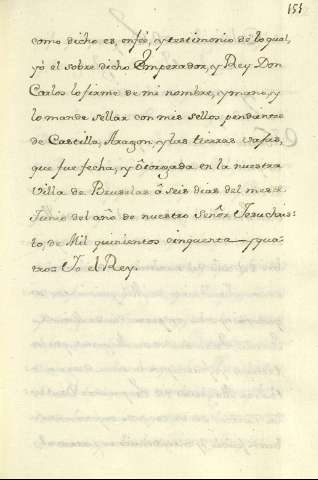 151
como dicho es, en feé, y testimonio de lo qual,
yó el sobre dicho Emperador, y Rey Don
Carlos lo firme de mi nombre, y mano, y
lo mande sellar con mis sellos pendantes
de Castilla, Aragon, y las tierras vafas,
que fue fecha, y ótorgada en la nuestra
Villa de Bruselas á seis dias del mes de
Junio del año de nuestro Señor Jesuchris-
to, de Mil quinientos cinquenta y qua-
tro= Yo el Rey.